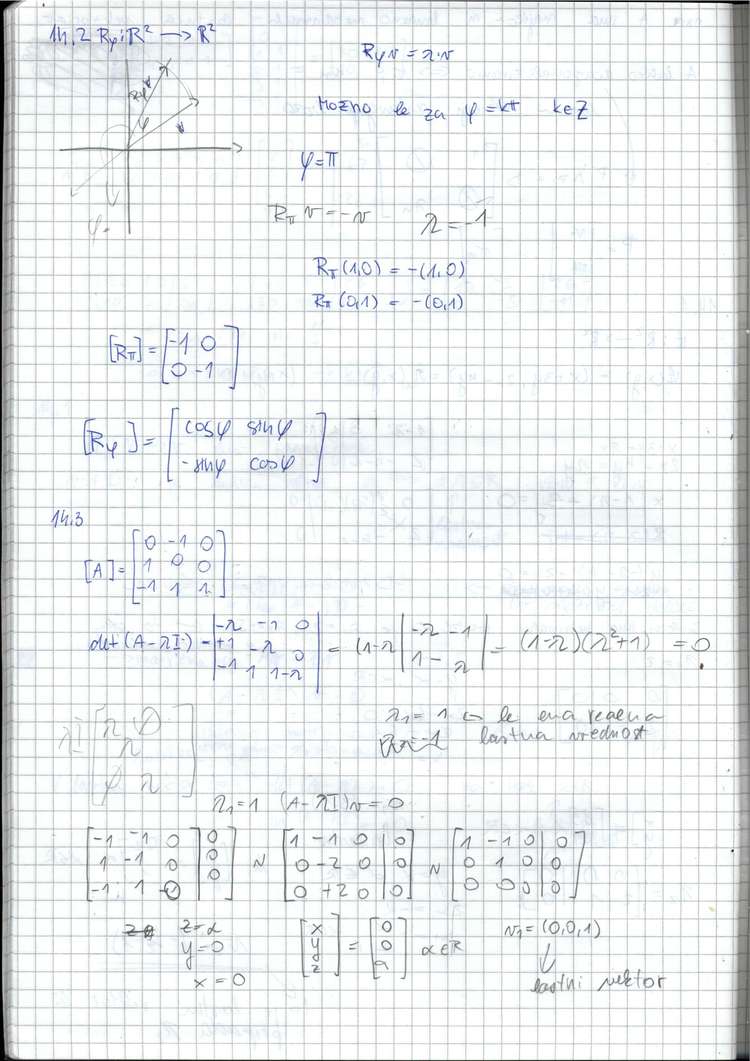 14.2 Rφ: ℝ² → ℝ²
Rφ v = λ·v
Rφv
φ
v
Možno le za φ = kπ k∈ℤ
φ = π
φ=
Rπ v = -v λ = -1
Rπ(1,0) = -(1,0)
Rπ(0,1) = -(0,1)
[Rπ] = [-1 0
0 -1]
[Rφ] = [cosφ sinφ
-sinφ cosφ]
14.3
[A] = [0 -1 0
1 0 0
-1 1 1]
det(A-λI) = |-λ -1 0| = (1-λ |-λ -1| = (1-λ)(λ²+1) = 0
|+1 -λ 0| |1 -λ|
|-1 1 1-λ|
λI [λ 0
λ
0 λ]
λ₁ = 1 ↦ le ena realna
lastna vrednost
λ₁ = 1 (A-λI)v = 0
[-1 -1 0 | 0] ~ [1 -1 0 | 0] ~ [1 -1 0 | 0]
[1 -1 0 | 0] [0 -2 0 | 0] [0 1 0 | 0]
[-1 1 0 | 0] [0 +2 0 | 0] [0 0 0 | 0]
z = α
y = 0
x = 0
[x] = [0] α∈ℝ
[y] [0]
[z] [α]
v₁ = (0,0,1)
↓
lastni vektor